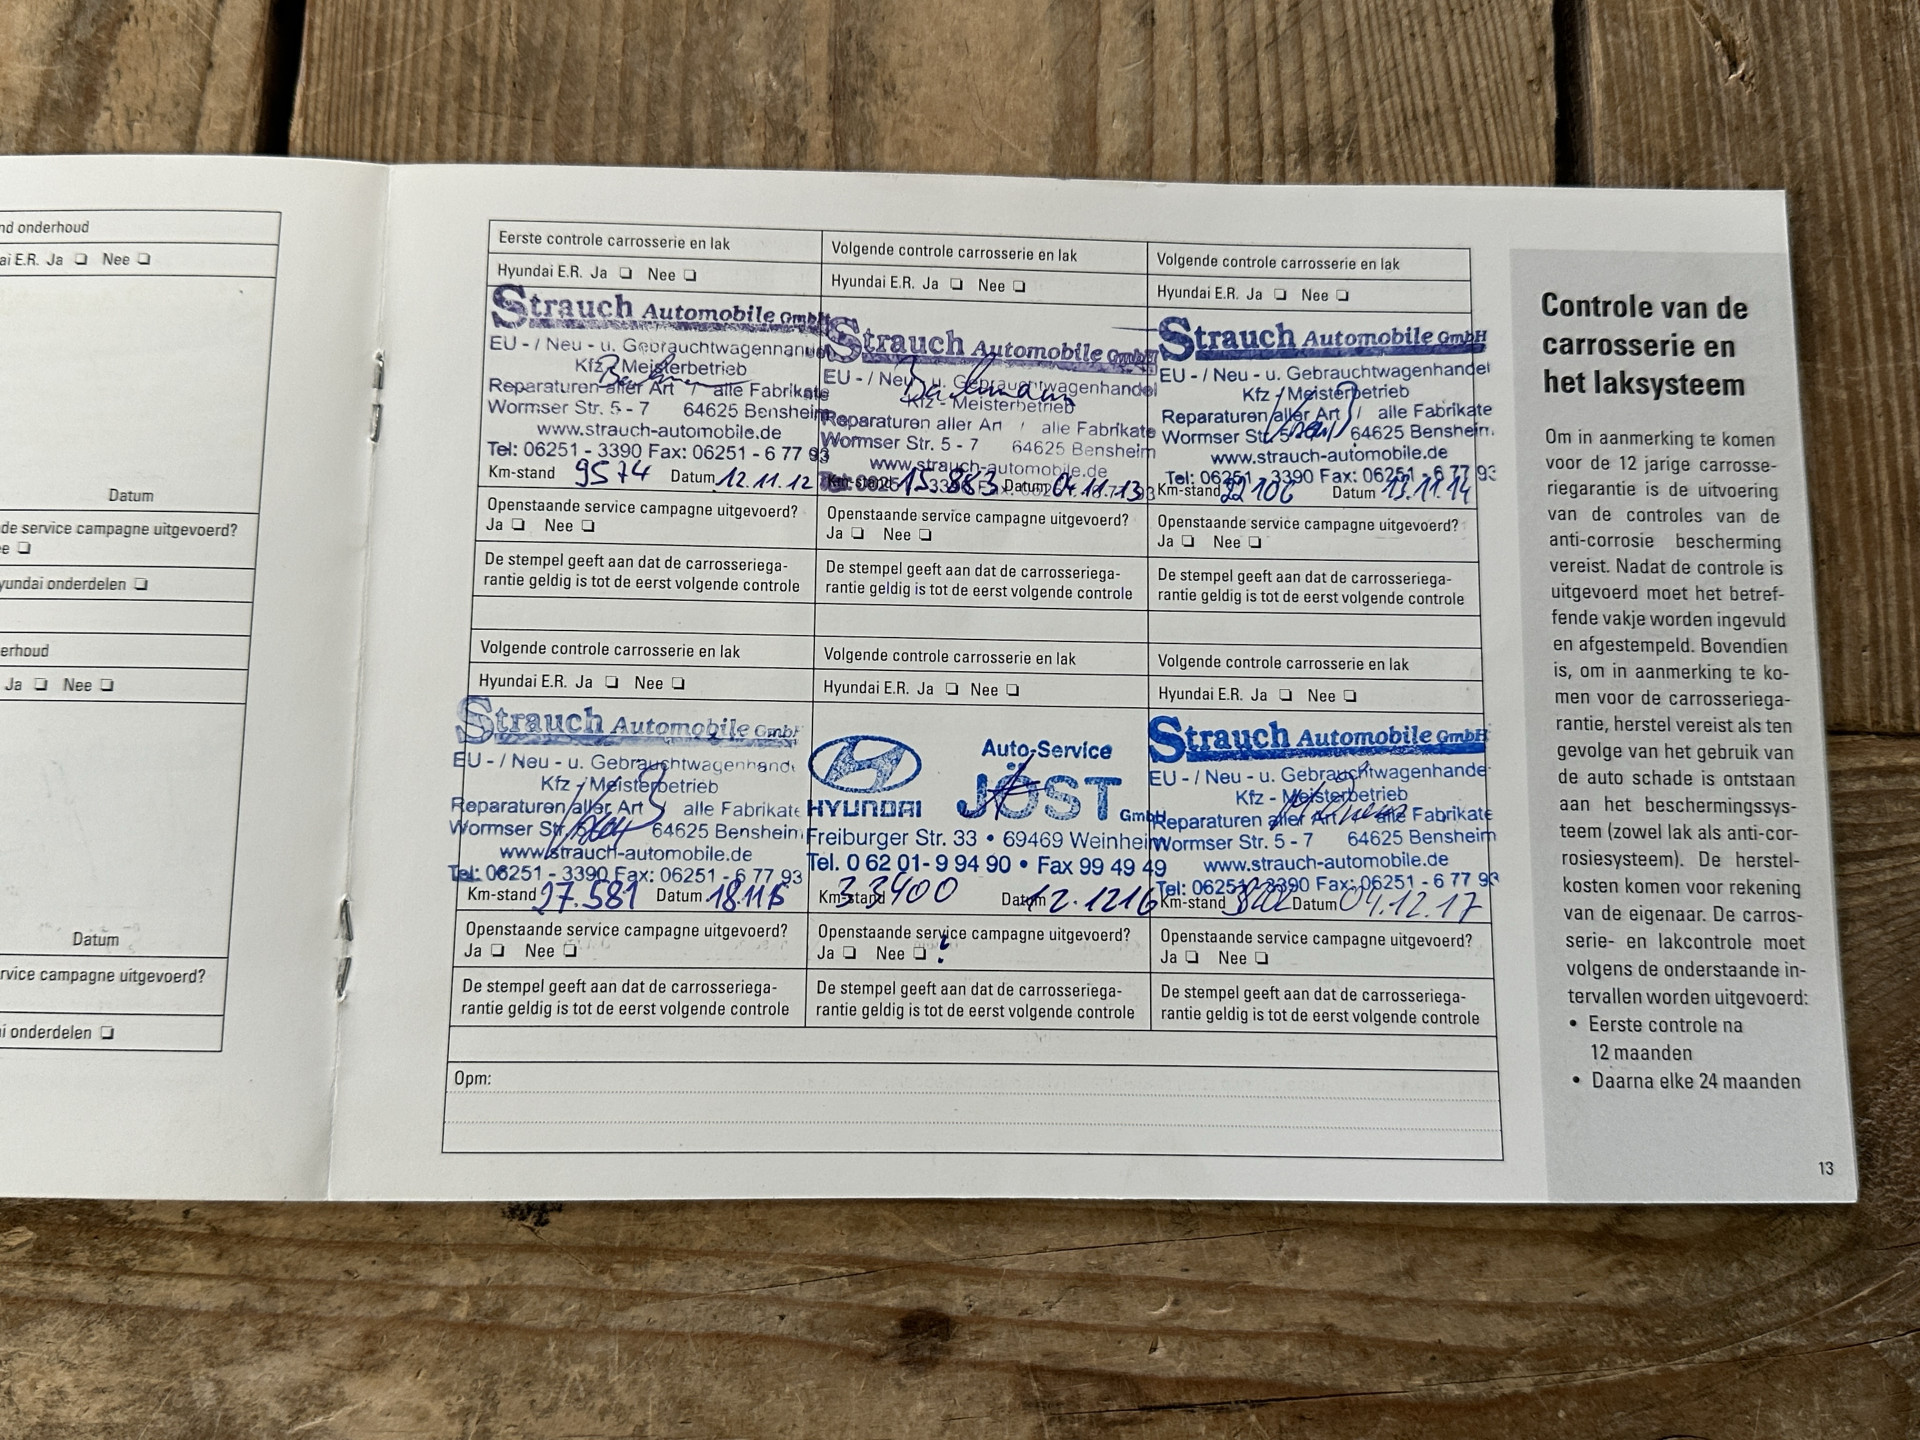 nd onderhoud
ai E.R. Ja ❏ Nee ❏
Datum
de service campagne uitgevoerd?
e ❏
yundai onderdelen ❏
erhoud
Ja ❏ Nee ❏
Datum
rvice campagne uitgevoerd?
i onderdelen ❏
Eerste controle carrosserie en lak
Hyundai E.R. Ja ❏ Nee ❏
Strauch Automobile GmbH
EU - / Neu - u. Gebrauchtwagenhandel
Kfz - Meisterbetrieb
Reparaturen aller Art / alle Fabrikate
Wormser Str. 5 - 7 64625 Bensheim
www.strauch-automobile.de
Tel: 06251 - 3390 Fax: 06251 - 6 77 93
Km-stand 9574 Datum 12.11.12
Openstaande service campagne uitgevoerd?
Ja ❏ Nee ❏
De stempel geeft aan dat de carrosseriega-
rantie geldig is tot de eerst volgende controle
Volgende controle carrosserie en lak
Hyundai E.R. Ja ❏ Nee ❏
Strauch Automobile GmbH
EU - / Neu - u. Gebrauchtwagenhandel
Kfz - Meisterbetrieb
Reparaturen aller Art / alle Fabrikate
Wormser Str. 5 - 7 64625 Bensheim
www.strauch-automobile.de
Km-stand 15 883 Datum 04.11.13
Openstaande service campagne uitgevoerd?
Ja ❏ Nee ❏
De stempel geeft aan dat de carrosseriega-
rantie geldig is tot de eerst volgende controle
Volgende controle carrosserie en lak
Hyundai E.R. Ja ❏ Nee ❏
Strauch Automobile GmbH
EU - / Neu - u. Gebrauchtwagenhandel
Kfz - Meisterbetrieb
Reparaturen aller Art / alle Fabrikate
Wormser Str. 5 64625 Bensheim
www.strauch-automobile.de
Tel: 06251 - 3390 Fax: 06251 - 6 77 93
Km-stand 22106 Datum 13.11.14
Openstaande service campagne uitgevoerd?
Ja ❏ Nee ❏
De stempel geeft aan dat de carrosseriega-
rantie geldig is tot de eerst volgende controle
Volgende controle carrosserie en lak
Hyundai E.R. Ja ❏ Nee ❏
Strauch Automobile GmbH
EU - / Neu - u. Gebrauchtwagenhand
Kfz - Meisterbetrieb
Reparaturen aller Art / alle Fabrikate
Wormser Str. 64625 Bensheim
www.strauch-automobile.de
Tel: 06251 - 3390 Fax: 06251 - 6 77 93
Km-stand 27.581 Datum
Openstaande service campagne uitgevoerd?
Ja ❏ Nee ❏
De stempel geeft aan dat de carrosseriega-
rantie geldig is tot de eerst volgende controle
Volgende controle carrosserie en lak
Hyundai E.R. Ja ❏ Nee ❏
Auto-Service
HYUNDAI JÖST GmbH
Freiburger Str. 33 • 69469 Weinheim
Tel. 0 62 01- 9 94 90 • Fax 99 49 49
Km-stand 33400 Datum 12.1216
Openstaande service campagne uitgevoerd?
Ja ❏ Nee ❏ ?
De stempel geeft aan dat de carrosseriega-
rantie geldig is tot de eerst volgende controle
Volgende controle carrosserie en lak
Hyundai E.R. Ja ❏ Nee ❏
Strauch Automobile GmbH
EU - / Neu - u. Gebrauchtwagenhande
Kfz - Meisterbetrieb
Reparaturen aller Art / alle Fabrikate
Wormser Str. 5 - 7 64625 Bensheim
www.strauch-automobile.de
Tel: 06251 - 3390 Fax: 06251 - 6 77 93
Km-stand Datum 04.12.17
Openstaande service campagne uitgevoerd?
Ja ❏ Nee ❏
De stempel geeft aan dat de carrosseriega-
rantie geldig is tot de eerst volgende controle
Opm:
Controle van de
carrosserie en
het laksysteem
Om in aanmerking te komen
voor de 12 jarige carrosse-
riegarantie is de uitvoering
van de controles van de
anti-corrosie bescherming
vereist. Nadat de controle is
uitgevoerd moet het betref-
fende vakje worden ingevuld
en afgestempeld. Bovendien
is, om in aanmerking te ko-
men voor de carrosseriega-
rantie, herstel vereist als ten
gevolge van het gebruik van
de auto schade is ontstaan
aan het beschermingssys-
teem (zowel lak als anti-cor-
rosiesysteem). De herstel-
kosten komen voor rekening
van de eigenaar. De carros-
serie- en lakcontrole moet
volgens de onderstaande in-
tervallen worden uitgevoerd:
• Eerste controle na
12 maanden
• Daarna elke 24 maanden
13